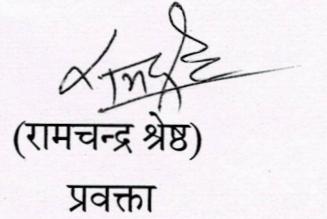 (रामचन्द्र श्रेष्ठ)
प्रवक्ता